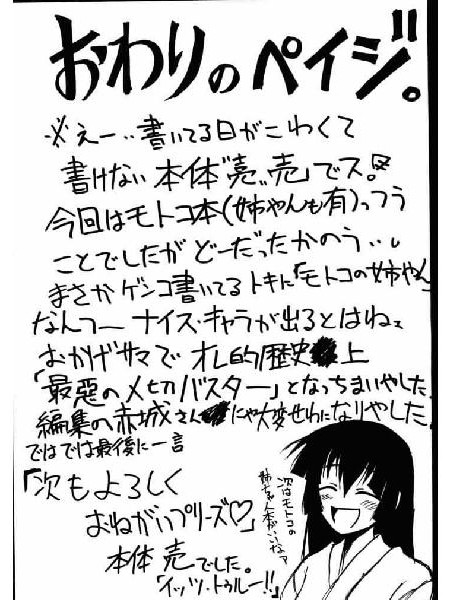 おわりのペイジ。
※えー‥書いてる日がこわくて
書けない本体“売„売」でス。
今回はモトコ本(姉やんも有)っつう
ことでしたがどーだったかのう‥
まさかゲンコ書いてるトキに「モトコの姉やん」
なんつーナイス・キャラが出るとはねェ
おかげサマでオレ的歴史上
「最悪の〆切バスター」となっちまいやした
編集の赤城さんにゃ大変せわになりやした
ではでは最後に一言
「次もよろしく
おねがいプリーズ♡」
本体 売でした。
「イッツ・トゥルー!!」
次はモトコの
姉ちゃん本がいいなァ